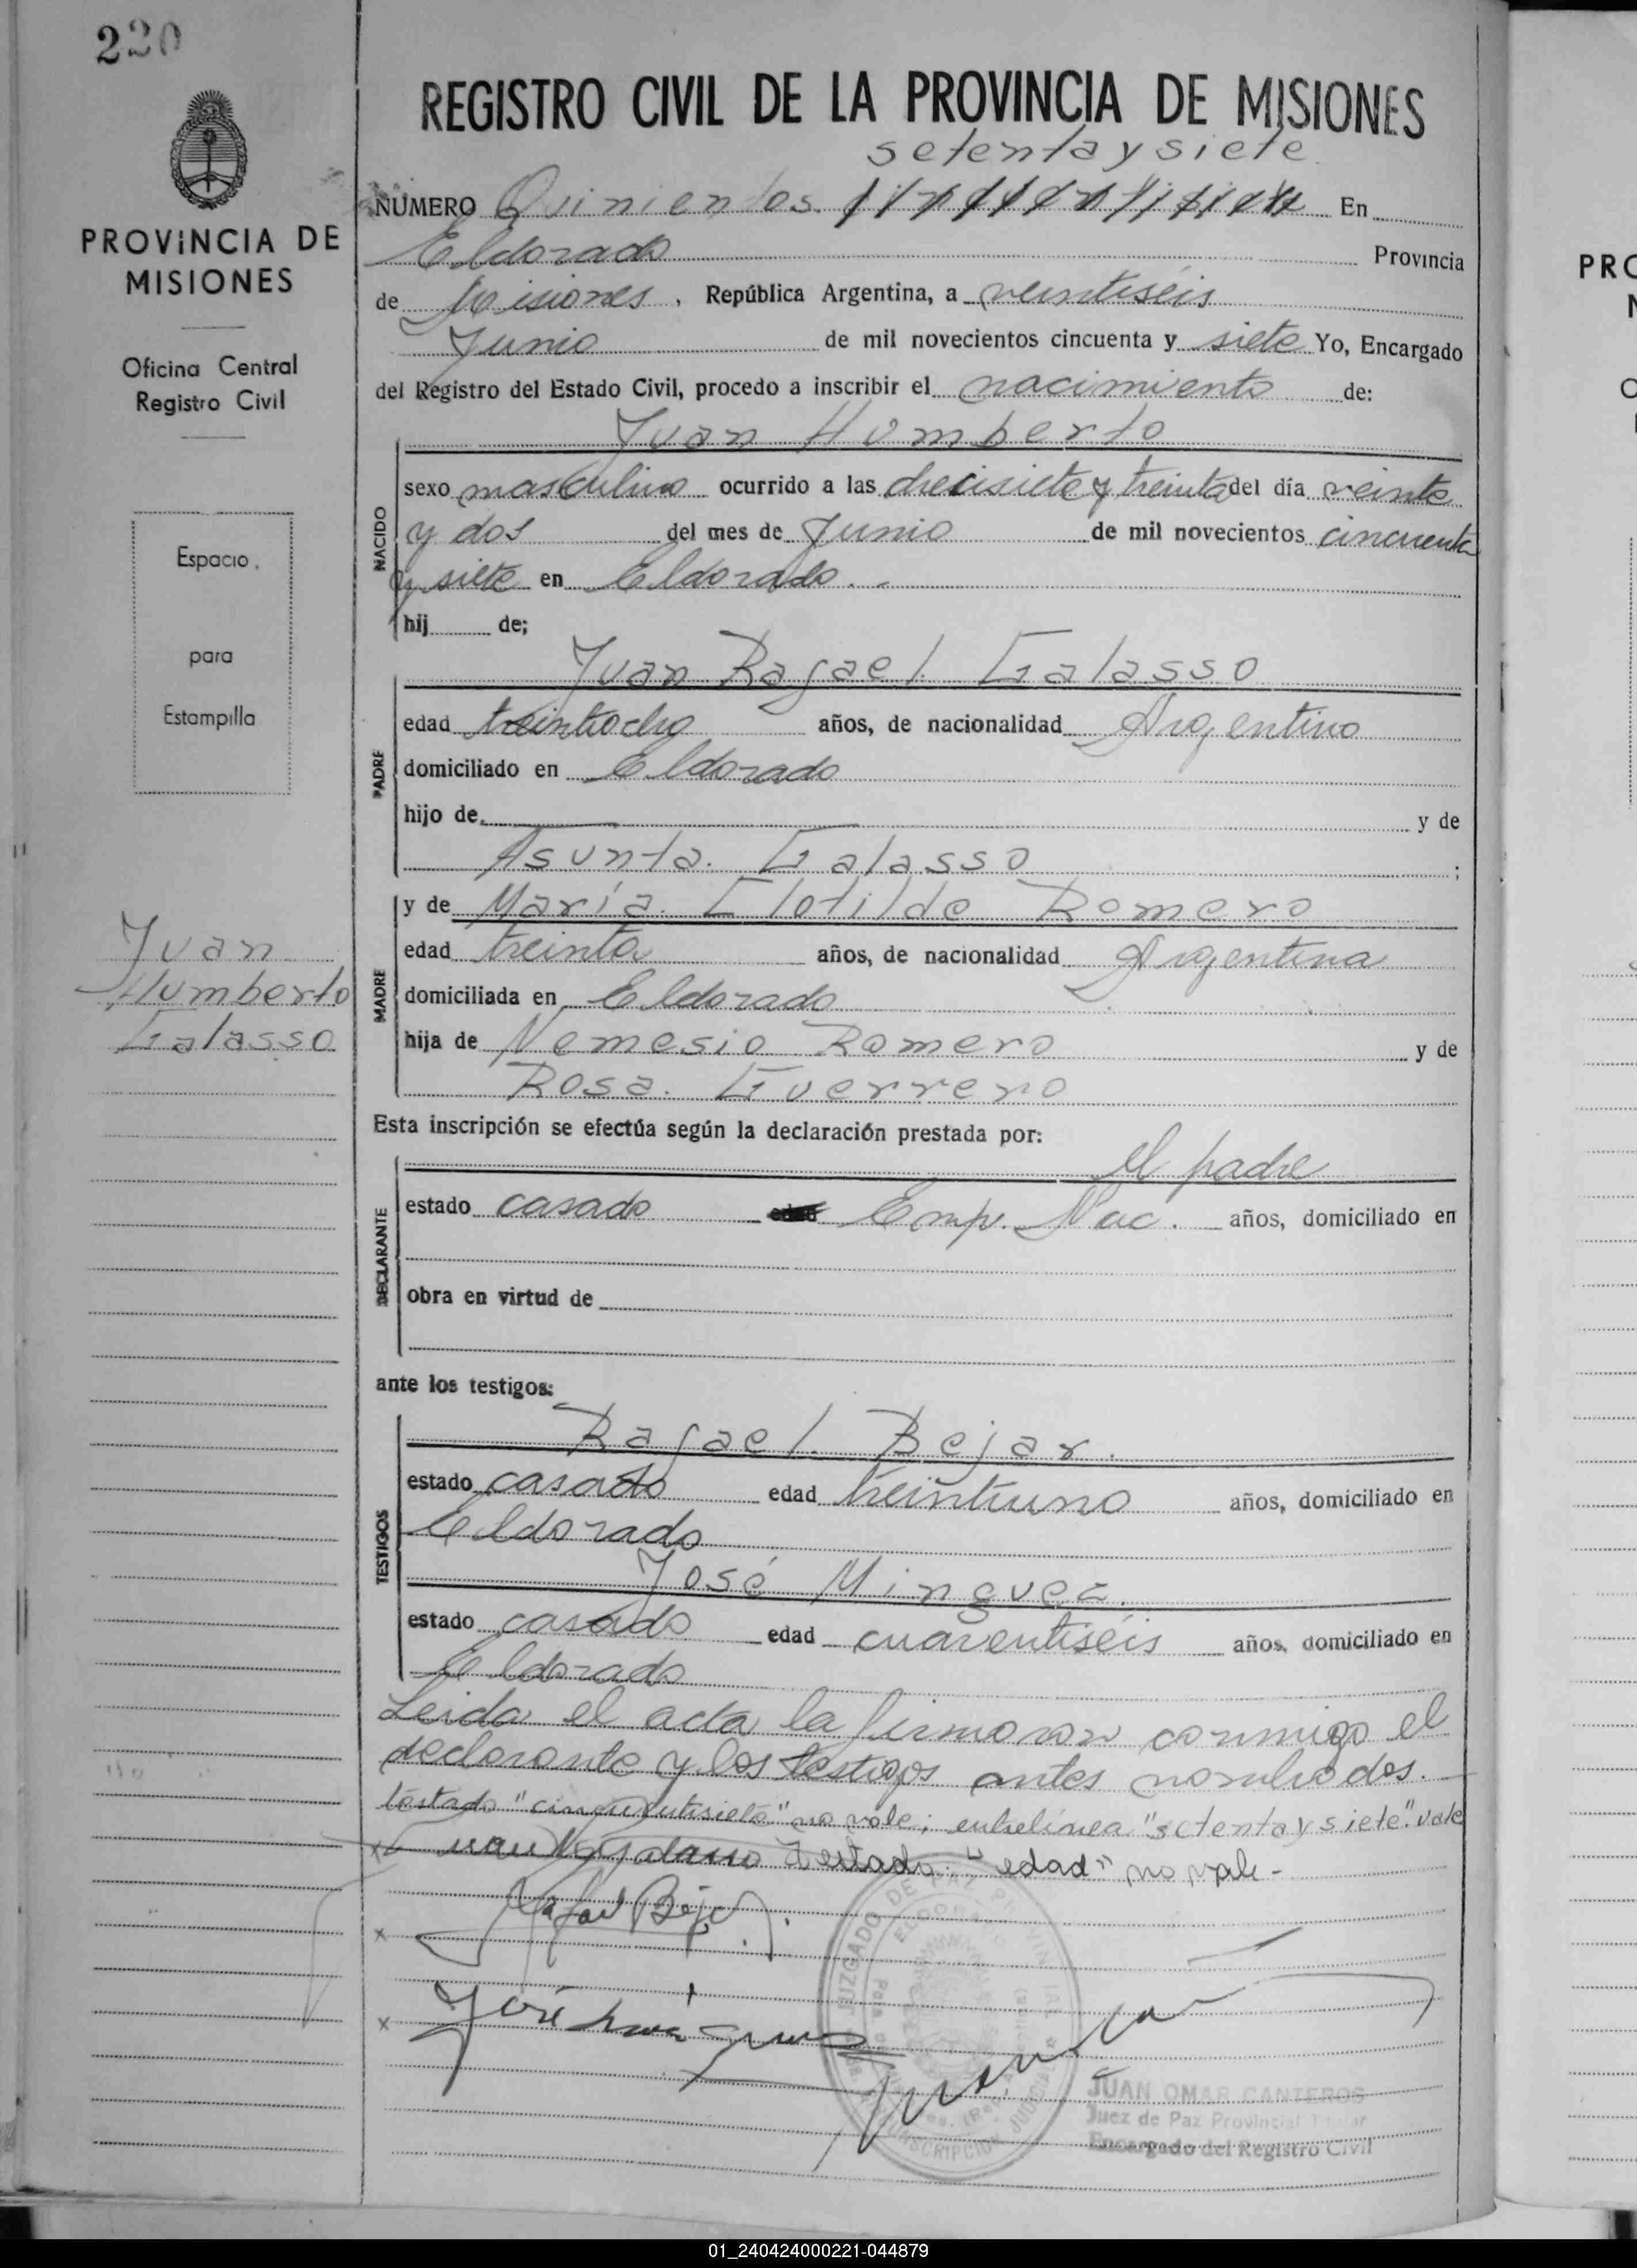 220
REGISTRO CIVIL DE LA PROVINCIA DE MISIONES
setenta y siete
NUMERO Quinientos En
Eldorado Provincia
de Misiones, República Argentina, a veintiséis
Junio de mil novecientos cincuenta y siete Yo, Encargado
del Registro del Estado Civil, procedo a inscribir el nacimiento de:
Juan Humberto
NACIDO
sexo masculino ocurrido a las diecisiete y treinta del día veinte
y dos del mes de Junio de mil novecientos cincuenta
y siete en Eldorado.
hij de;
Juan Rafael Galasso
PADRE
edad treintiocho años, de nacionalidad Argentino
domiciliado en Eldorado
hijo de y de
Asunta Galasso ;
y de María Clotilde Romero
MADRE
edad treinta años, de nacionalidad Argentina
domiciliada en Eldorado
hija de Nemesio Romero y de
Rosa Guerrero
Esta inscripción se efectúa según la declaración prestada por:
el padre
DECLARANTE
estado casado edad Emp. Nac. años, domiciliado en
obra en virtud de
ante los testigos:
Rafael Bejar.
TESTIGOS
estado casado edad treintiuno años, domiciliado en
Eldorado
José Minguez.
estado casado edad cuarentiseis años, domiciliado en
Eldorado
Leida el acta la firmaron conmigo el
declarante y los testigos antes nombrados.
testado "cincuentisiete" no vale; entrelínea "setenta y siete" vale
Testado: "edad" no vale-
Rafael Bejar
José Minguez
JUZGADO DE PAZ
ELDORADO
JUAN OMAR CANTEROS
Juez de Paz Provincial Titular
Encargado del Registro Civil
PROVINCIA DE
MISIONES
Oficina Central
Registro Civil
Espacio
para
Estampilla
Juan
Humberto
Galasso
01_240424000221-044879